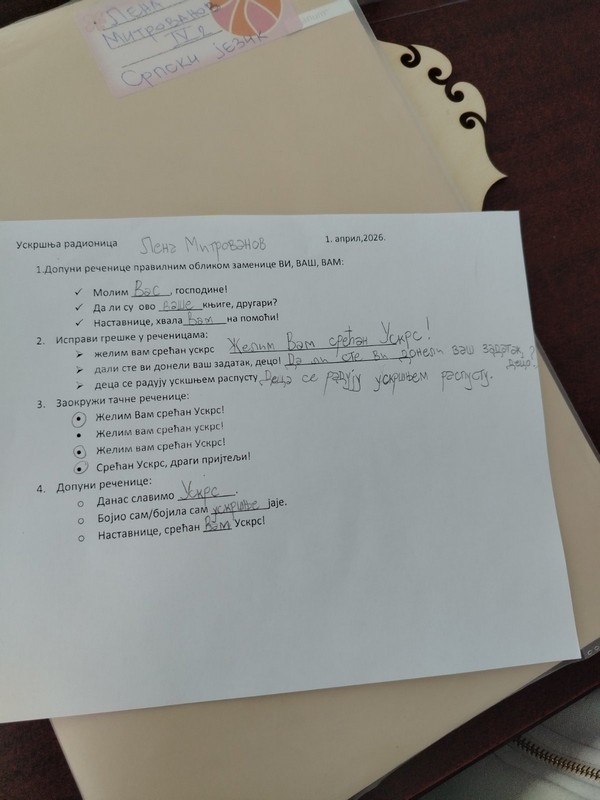 Лена
Митрованов
IV 2
Српски језик
Ускршња радионица Лена Митрованов 1. април,2026.
1.Допуни реченице правилним обликом заменице ВИ, ВАШ, ВАМ:
✓ Молим Вас, господине!
✓ Да ли су ово ваше књиге, другари?
✓ Наставнице, хвала Вам на помоћи!
2. Исправи грешке у реченицама:
➢ желим вам срећан ускрс Желим Вам срећан Ускрс!
➢ дали сте ви донели ваш задатак, децо! Да ли сте ви донели ваш задатак, децо?
➢ деца се радују ускшњем распусту Деца се радују ускршњем распусту.
3. Заокружи тачне реченице:
• Желим Вам срећан Ускрс!
• Желим вам срећан ускрс!
• Желим вам срећан Ускрс!
• Срећан Ускрс, драги пријтељи!
4. Допуни реченице:
○ Данас славимо Ускрс.
○ Бојио сам/бојила сам ускршње јаје.
○ Наставнице, срећан Вам Ускрс!